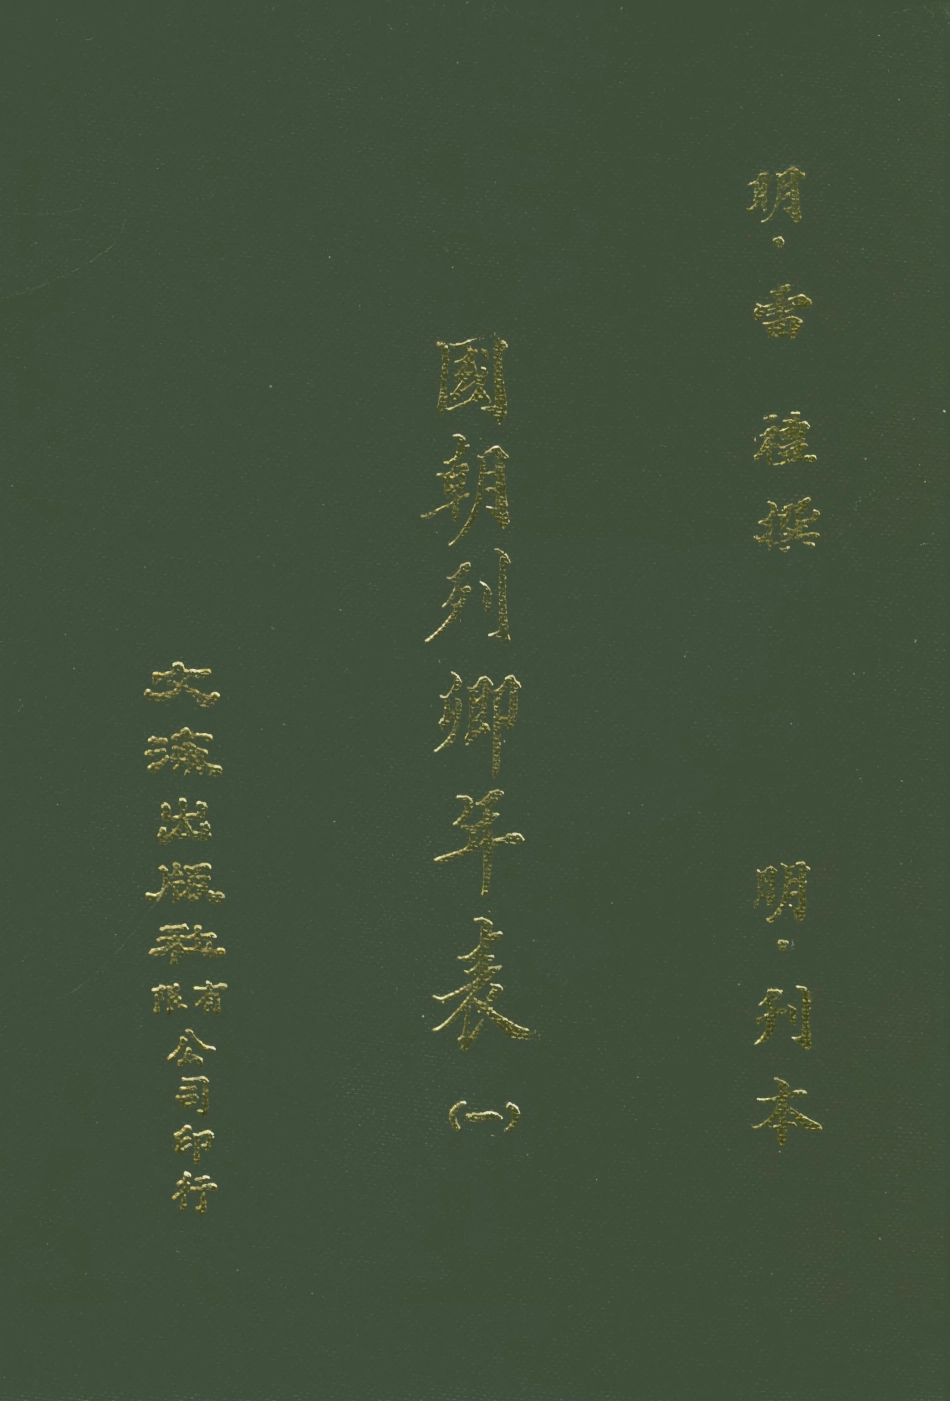 明·雷 禮撰 明·刊本
國朝列卿年表(一)
文海出版社有限公司印行